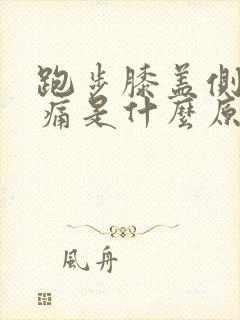 跑步膝盖側
痛是什麼原
風舟